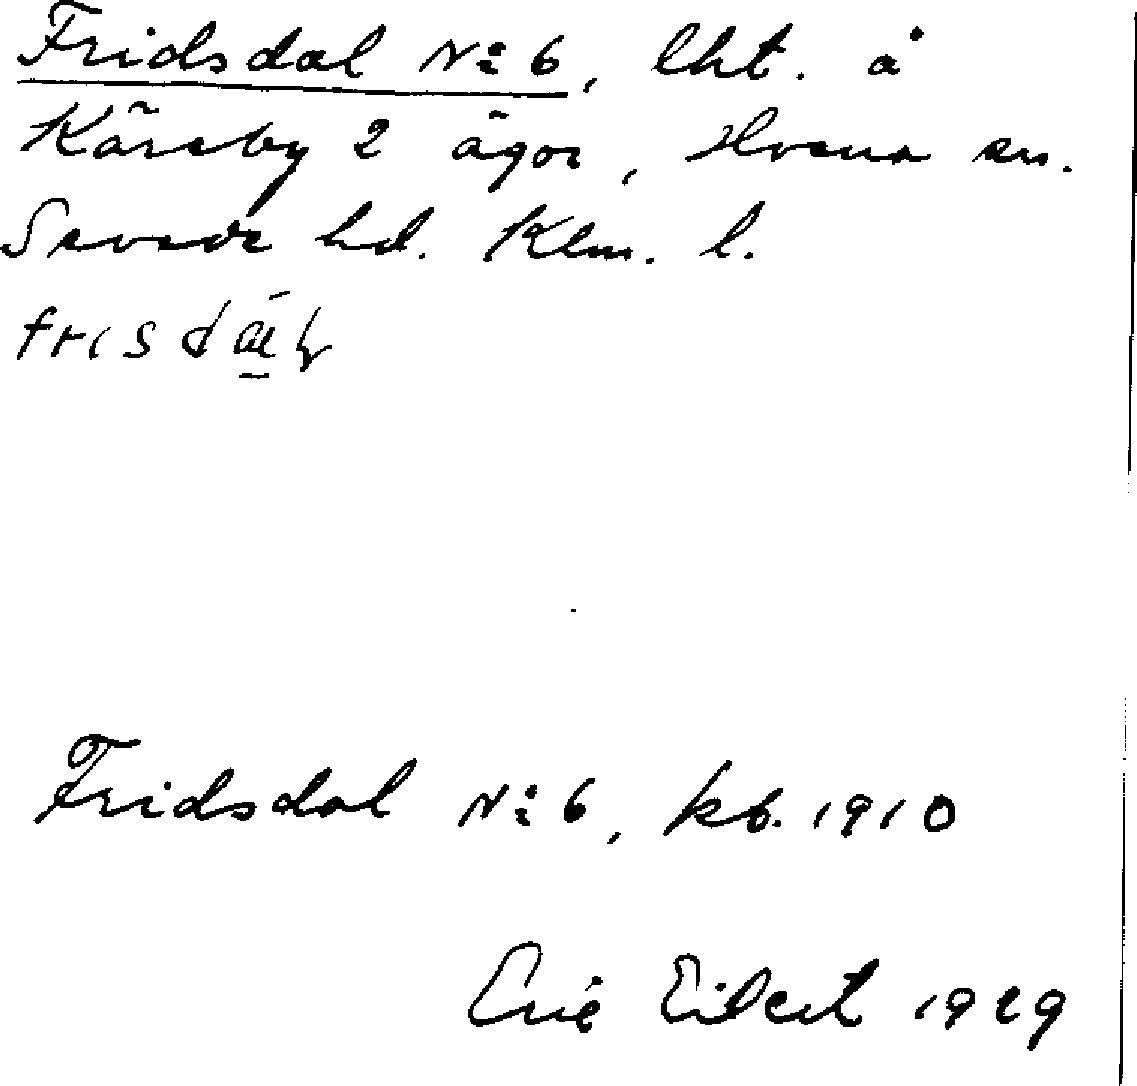 Fridsdal N:i 6, lht. å
Kärsby 2 ägor, Hvena sn.
Sevede hd. Klm. l.
Fridsdal N:i 6, kb. 1910
Eric Eilert 1929